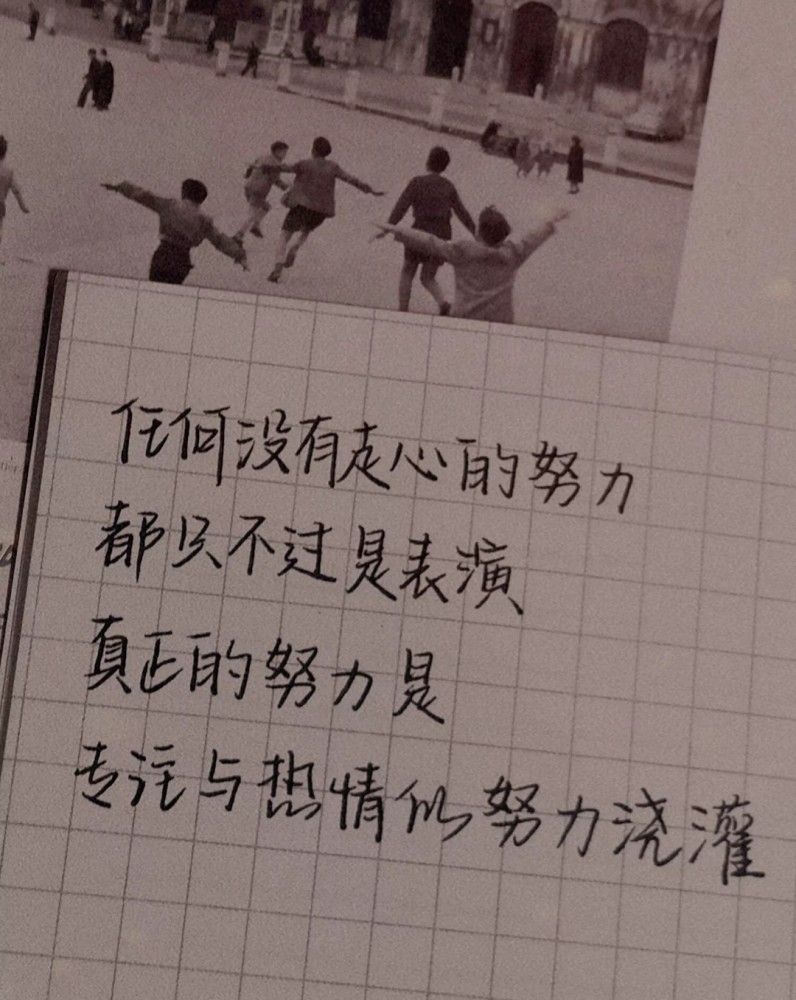 任何没有走心的努力
都只不过是表演
真正的努力是
专注与热情似努力浇灌